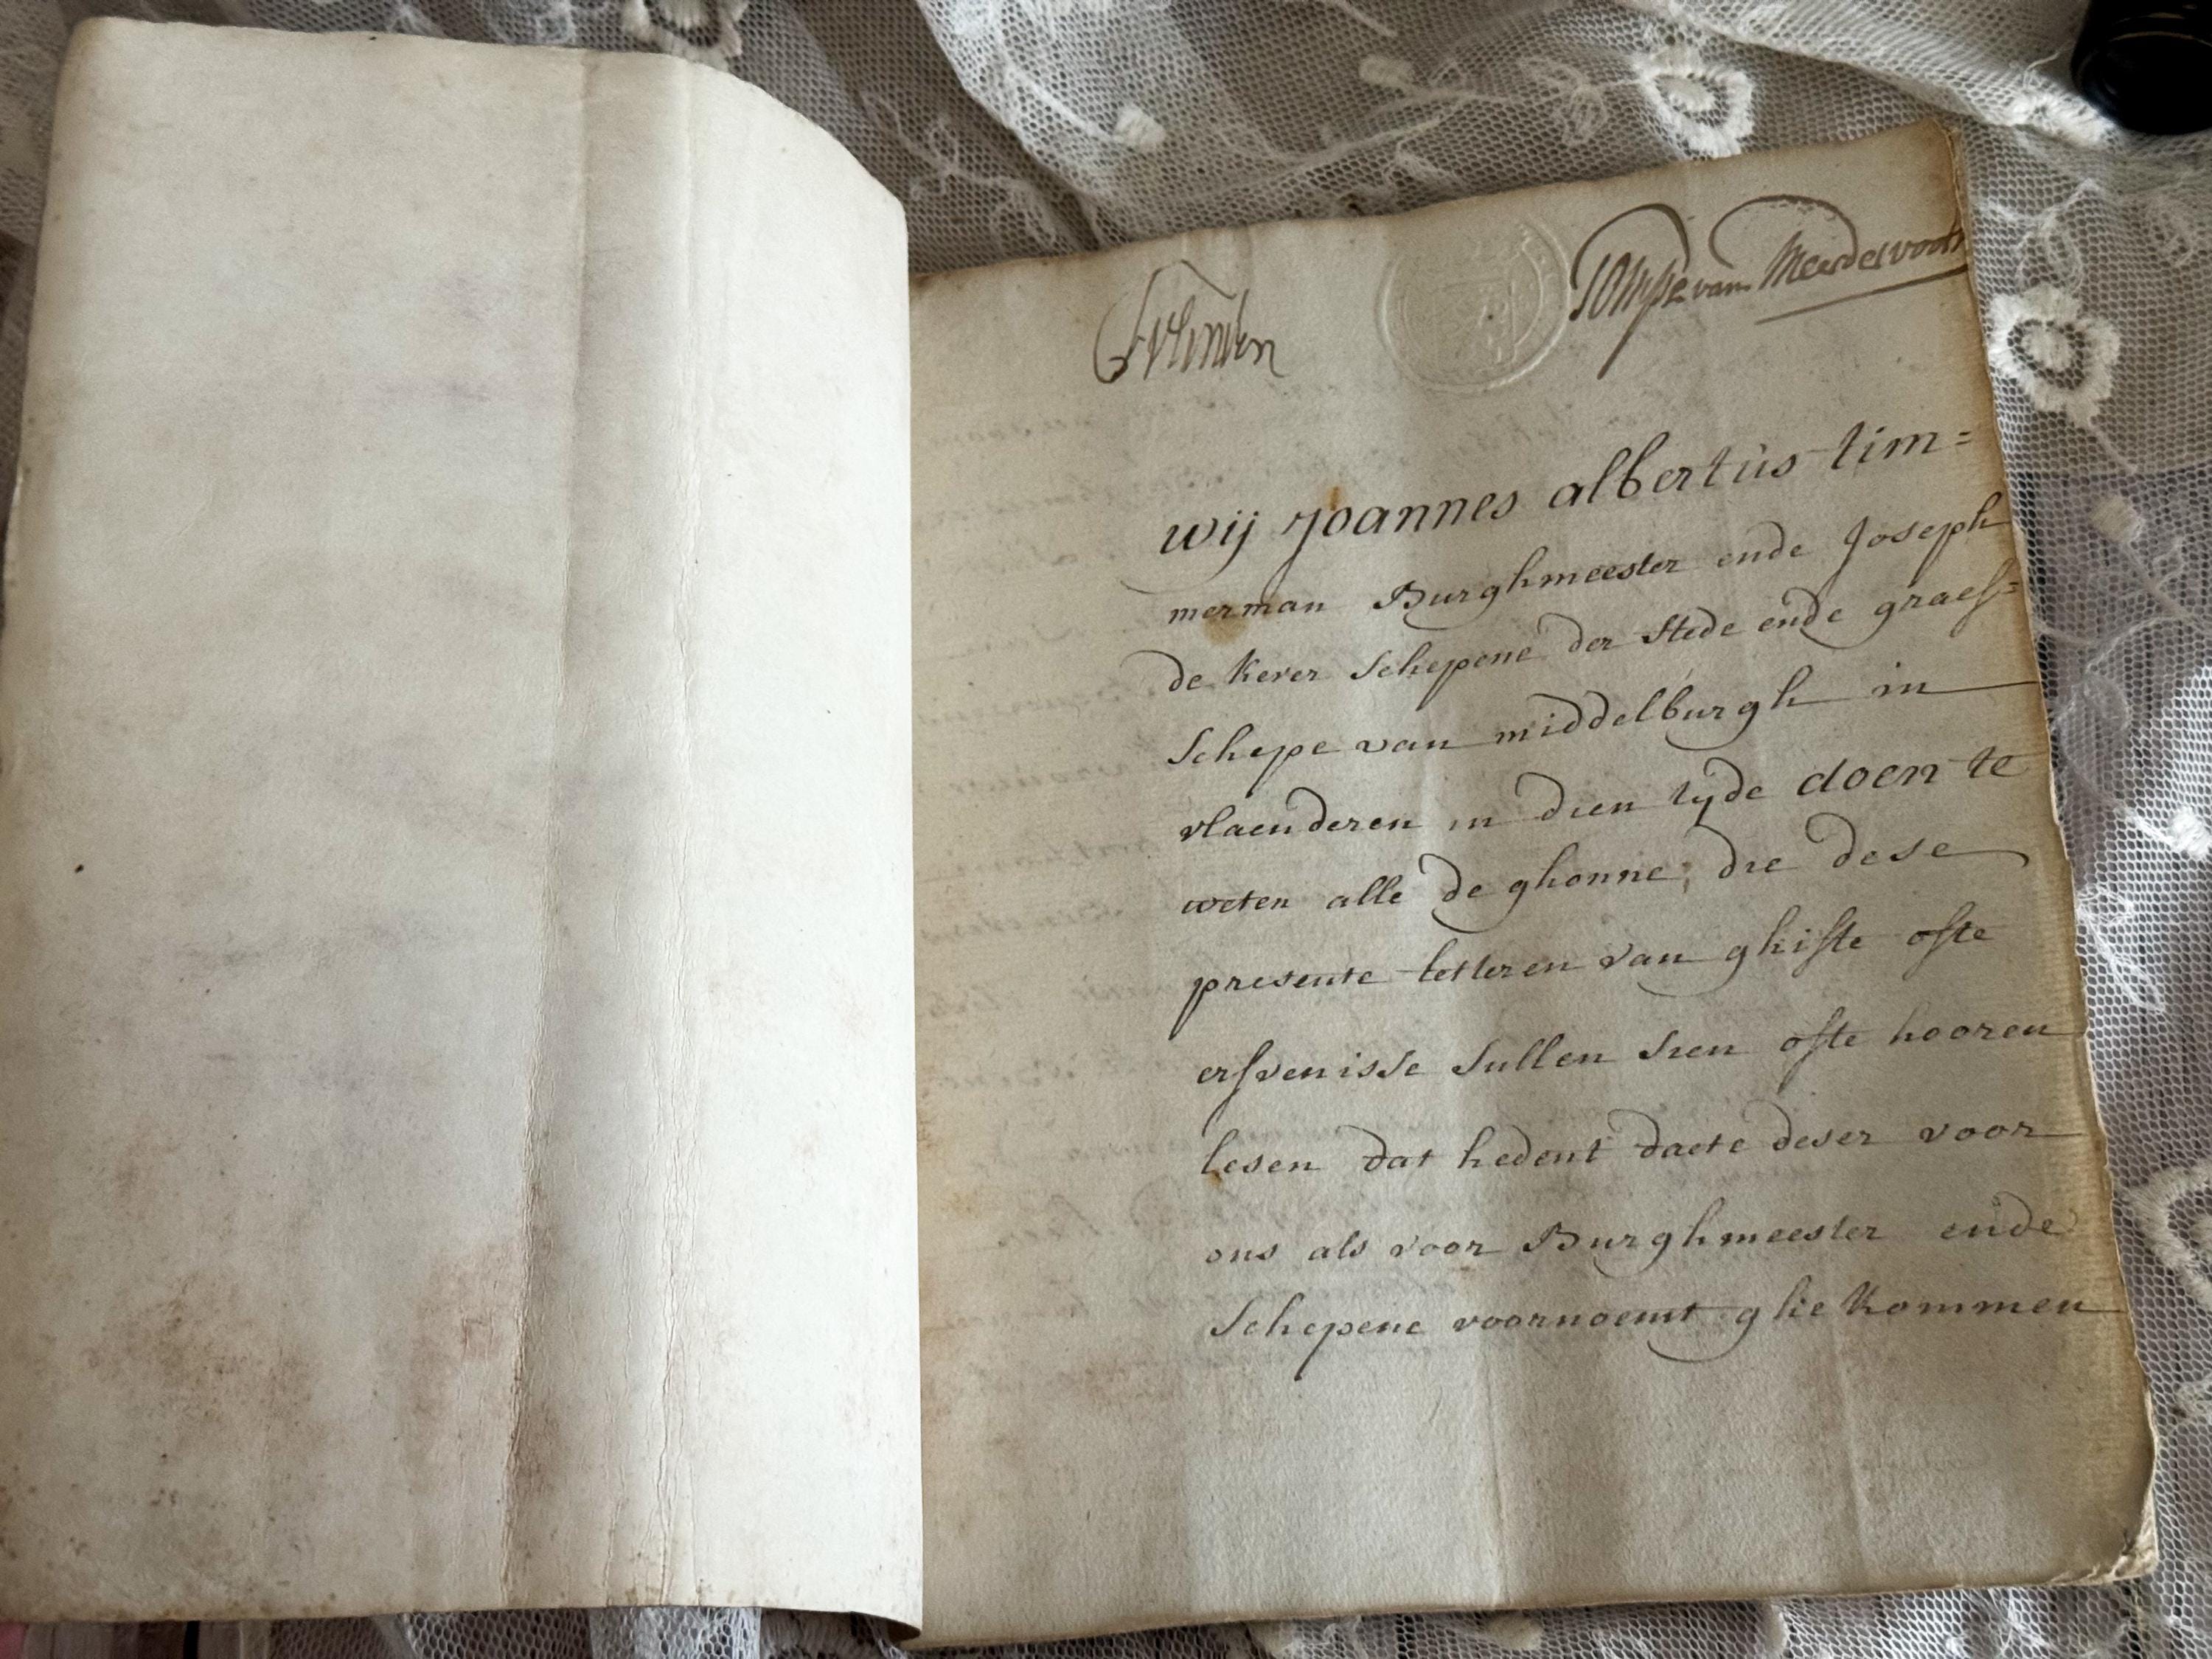 Pompe van Meerdervoort
wij Joannes albertus tim=
merman Burghmeester ende Joseph
de Kever Schepene der Stede ende graef=
Schepe van middelburgh in
vlaenderen in dien tyde doen te
weten alle de ghonne, die dese
presente letteren van ghifte ofte
erfvenisse Sullen Sien ofte hooren
lesen dat hedent daete deser voor
ons als voor Burghmeester ende
Schepene voornoemt ghekommen